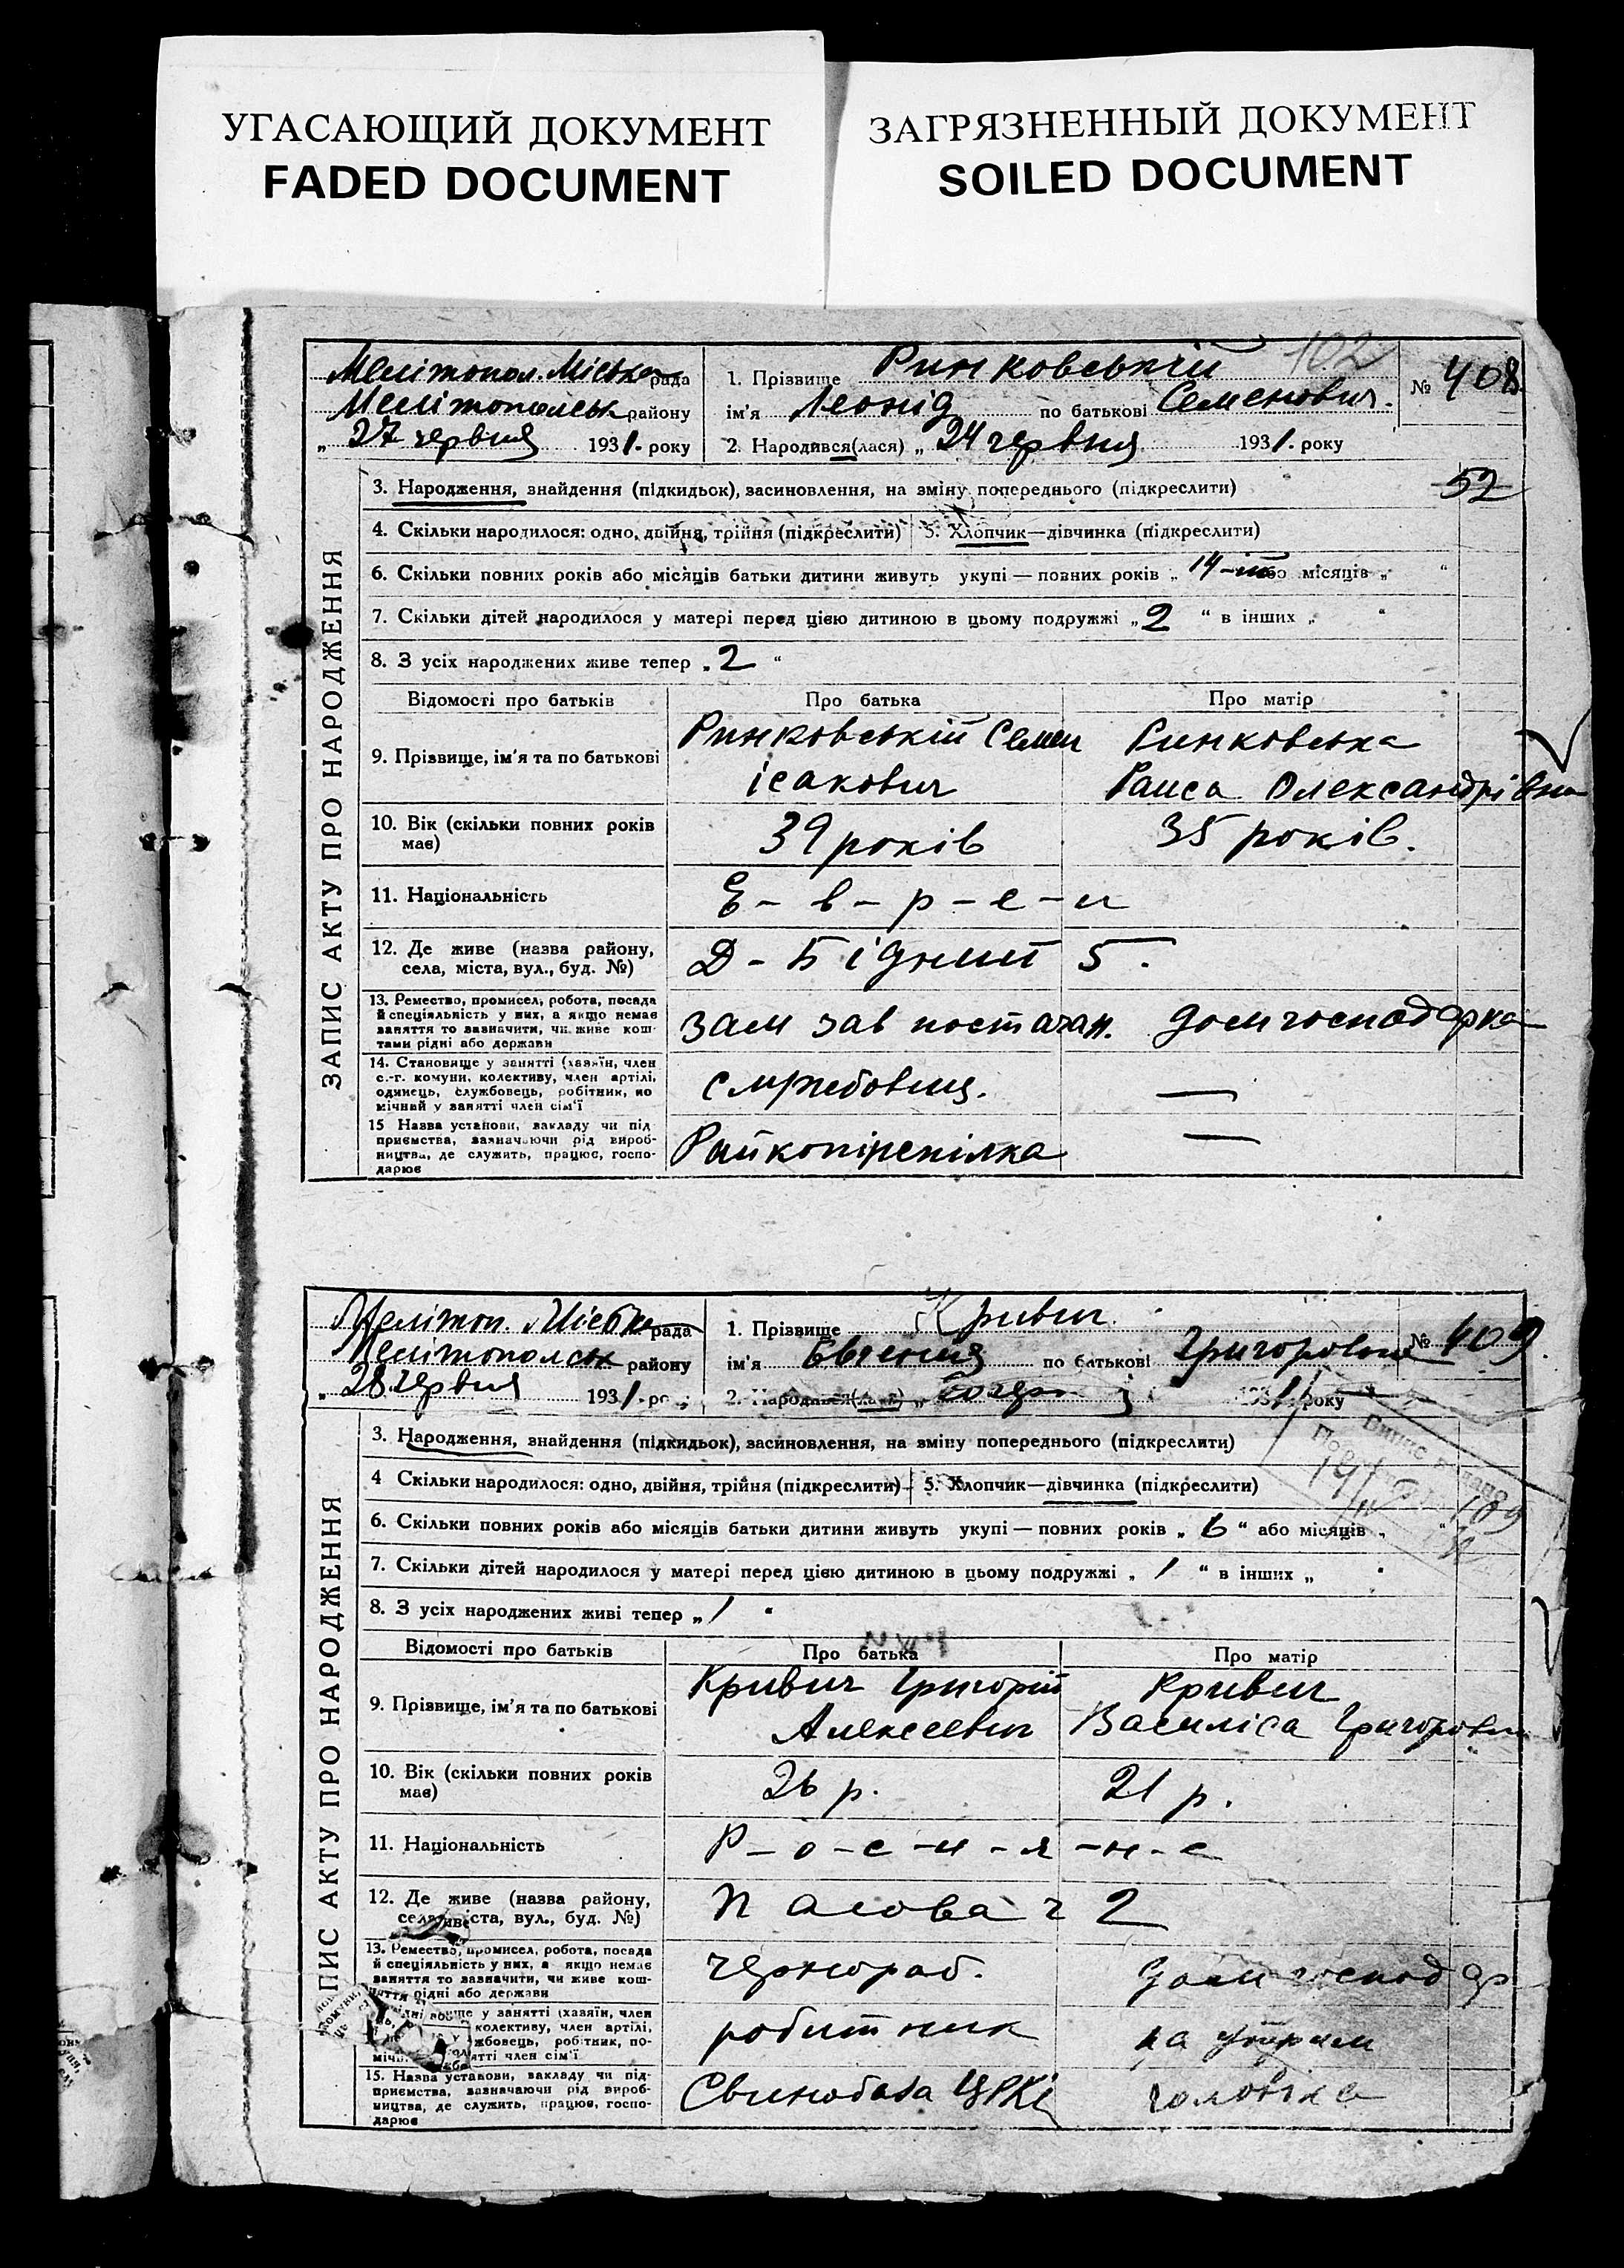 УГАСАЮЩИЙ ДОКУМЕНТ
FADED DOCUMENT
ЗАГРЯЗНЕННЫЙ ДОКУМЕНТ
SOILED DOCUMENT
102
ЗАПИС АКТУ ПРО НАРОДЖЕННЯ
Мелітопол. Міська рада
Мелітопольськ району
„ 27 червня 1931. року
1. Прізвище Ринковський
ім'я Леонід по батькові Семенович.
2. Народився(лася) „ 24 червня 1931. року
№ 408
52
3. Народження, знайдення (підкидьок), засиновлення, на зміну попереднього (підкреслити)
4. Скільки народилося: одно, двійня, трійня (підкреслити)
5. Хлопчик—дівчинка (підкреслити)
6. Скільки повних років або місяців батьки дитини живуть укупі — повних років „ 14 або місяців „ “
7. Скільки дітей народилося у матері перед цією дитиною в цьому подружжі „ 2 “ в інших „ “
8. З усіх народжених живе тепер „ 2 “
Відомості про батьків Про батька Про матір
9. Прізвище, ім'я та по батькові
Ринковській Семен
ісакович
Ринковська
Раиса Олександрівна
10. Вік (скільки повних років має)
39 років 35 років.
11. Національність
Е - в - р - е - и
12. Де живе (назва району,
села, міста, вул., буд. №)
Д - Бідний 5.
13. Ремество, промисел, робота, посада
й спеціяльність у них, а якщо немає
заняття то зазначити, чи живе кош-
тами рідні або держави
зам зав постачан. домгосподарка
14. Становище у занятті (хазяїн, член
с.-г. комуни, колективу, член артілі,
одинець, службовець, робітник, по
мічний у занятті член сім'ї
службовець. —
15 Назва установи, закладу чи під
приємства, зазначаючи рід вироб-
ництва, де служить, працює, госпо-
дарює
—
ПИС АКТУ ПРО НАРОДЖЕННЯ
Мелітоп. Міська рада
Мелітопольськ району
„ 28 червня 1931. ро
1. Прізвище Кривич.
ім'я Евгения по батькові Григоровна
2. Народився(лася) „ 1931 року
№ 409.
3. Народження, знайдення (підкидьок), засиновлення, на зміну попереднього (підкреслити)
4 Скільки народилося: одно, двійня, трійня (підкреслити)
5. Хлопчик—дівчинка (підкреслити)
6. Скільки повних років або місяців батьки дитини живуть укупі — повних років „ 6 “ або місяців „ “
7. Скільки дітей народилося у матері перед цією дитиною в цьому подружжі „ 1 “ в інших „ “
8. З усіх народжених живі тепер „ 1 “
Відомості про батьків Про батька Про матір
9. Прізвище, ім'я та по батькові
Кривич Григорій
Алексеевич
Кривич
Василіса Григоровна
10. Вік (скільки повних років має)
26 р. 21 р.
11. Національність
Р - о - с - и - я - н - е
12. Де живе (назва району,
міста, вул., буд. №)
2
13. Ремество, промисел, робота, посада
й спеціяльність у них, а якщо немає
заняття то зазначити, чи живе кош-
рідні або держави
чернораб. домгосподар
у занятті (хазяїн, член
колективу, член артілі,
жбовець, робітник, по-
член сім'ї
робитник на утрим
15. Назва установи, закладу чи під-
приємства, зазначаючи рід вироб-
ництва, де служить, працює, госпо-
дарює
Свинобаза ЦРК чоловіка